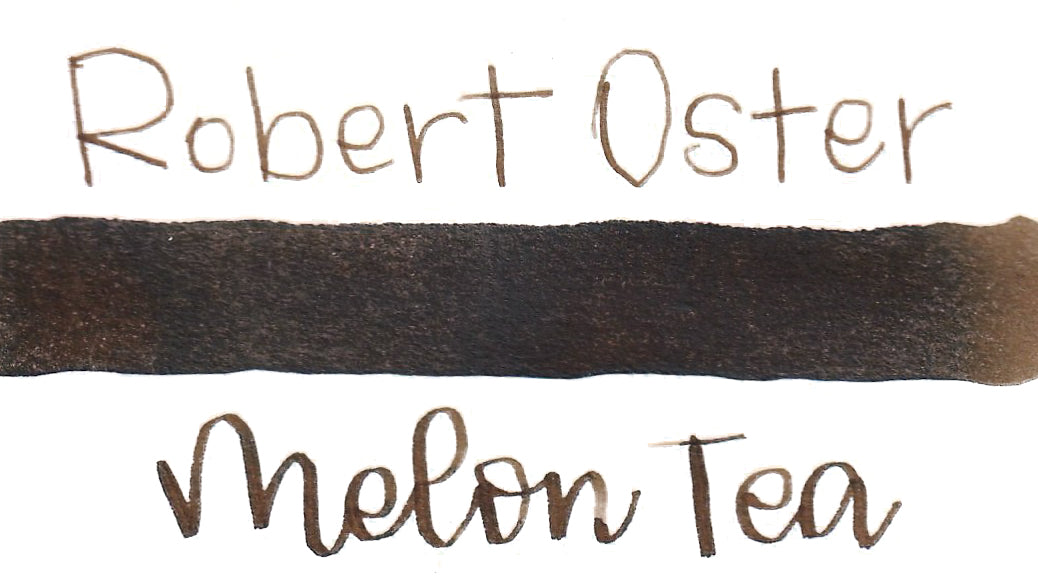 Robert Oster
Melon Tea